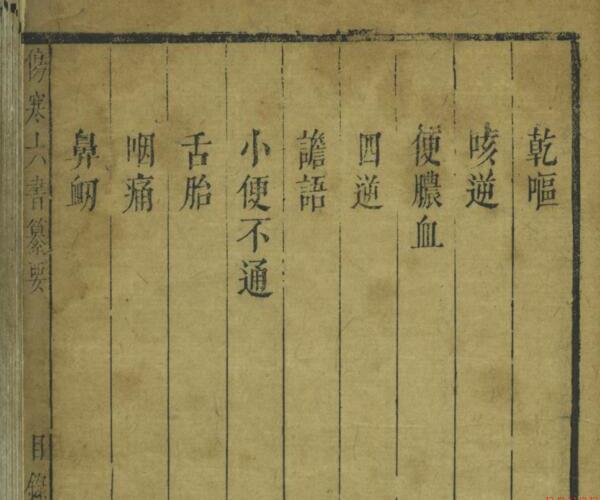 乾嘔
咳逆
便膿血
四逆
譫語
小便不通
舌胎
咽痛
鼻衂
傷寒六書纂要
目錄